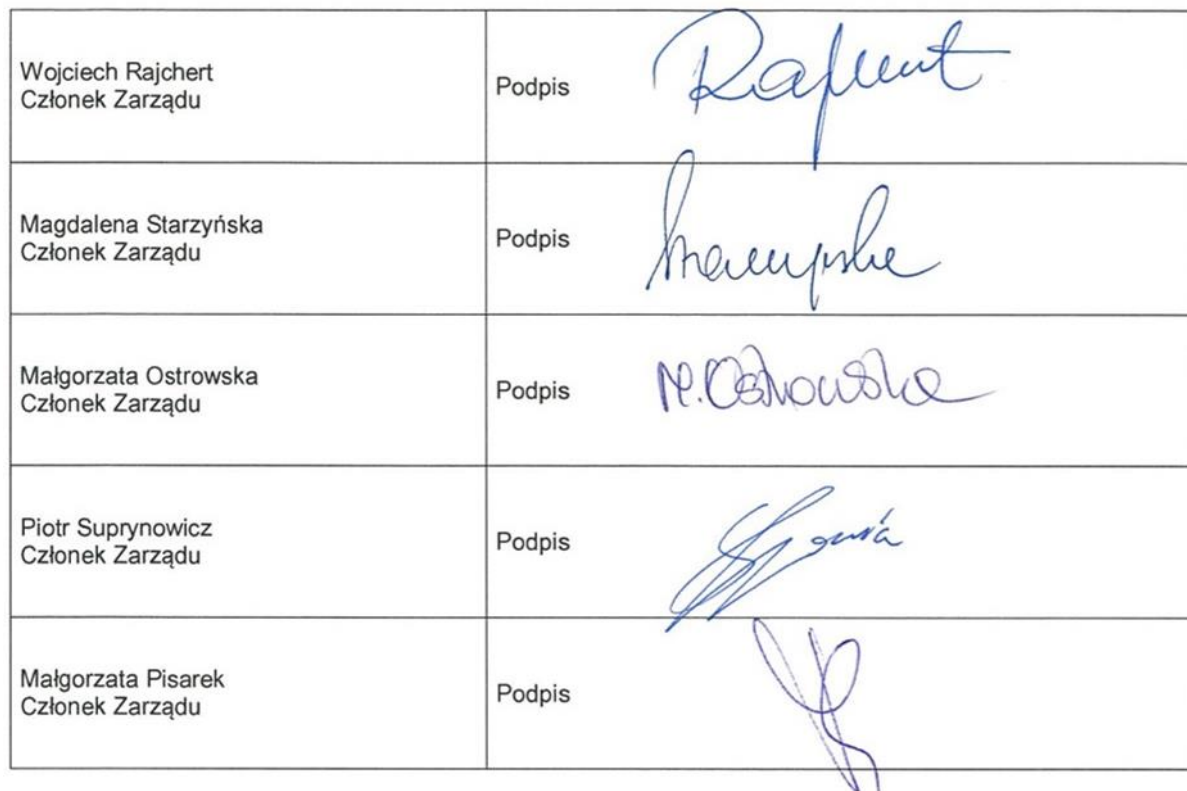 Wojciech Rajchert
Członek Zarządu
Podpis
Magdalena Starzyńska
Członek Zarządu
Podpis
Małgorzata Ostrowska
Członek Zarządu
Podpis
M. Ostrowska
Piotr Suprynowicz
Członek Zarządu
Podpis
Małgorzata Pisarek
Członek Zarządu
Podpis